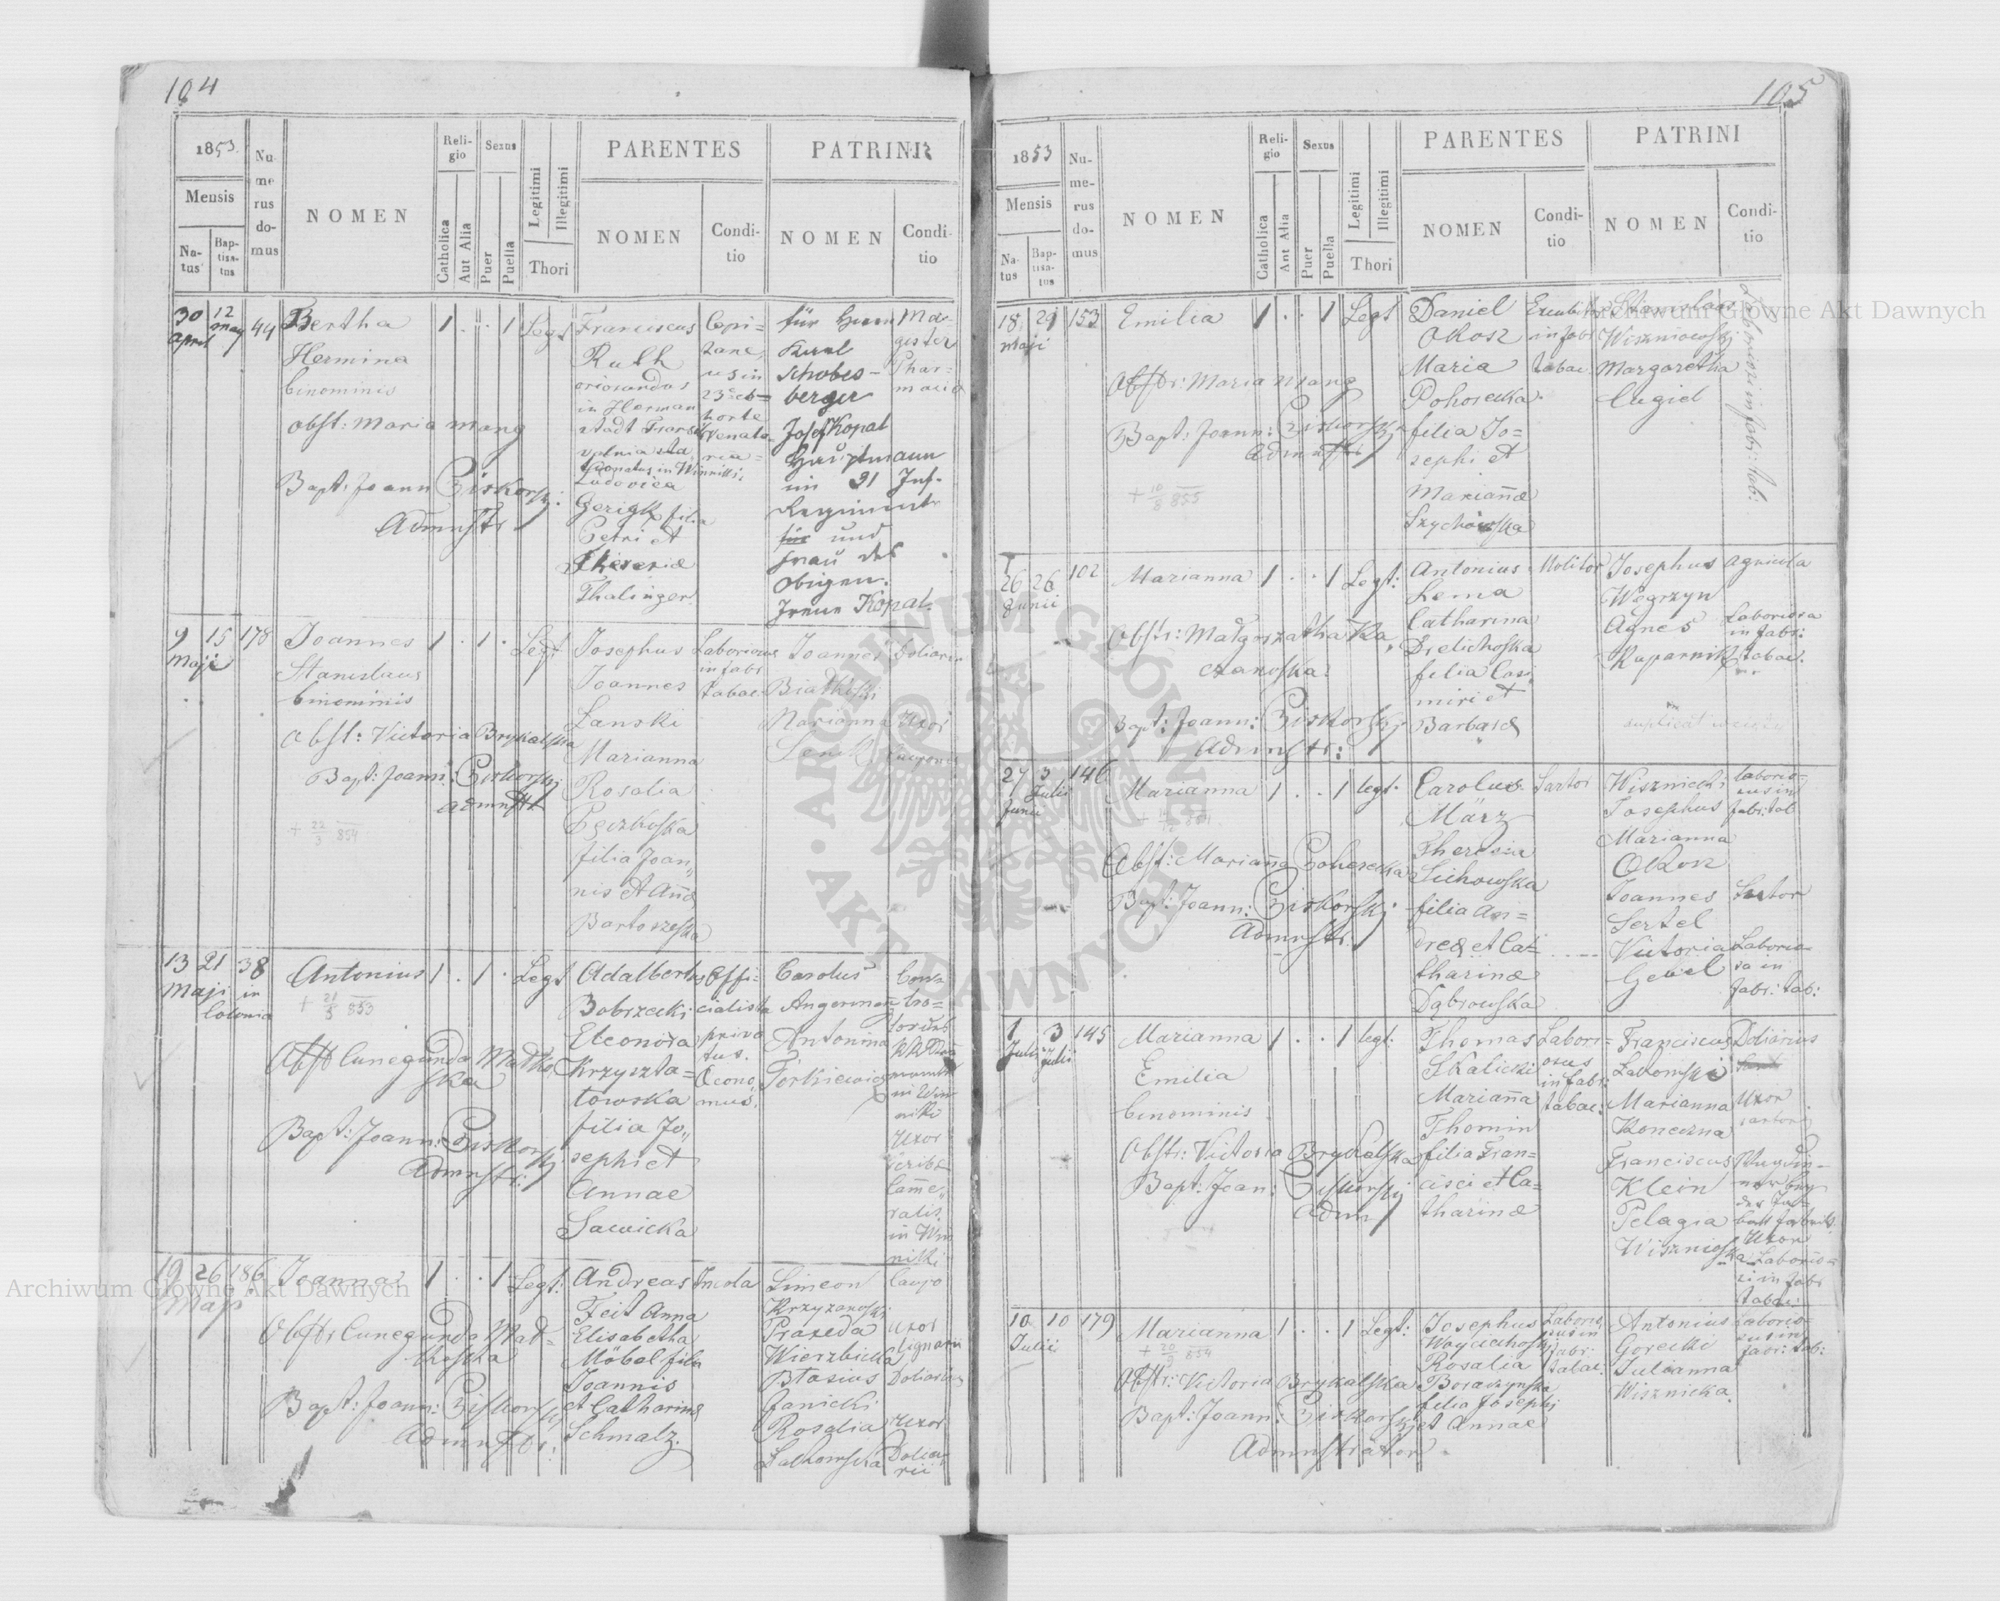 104
1853
Mensis
Natus
Baptisatus
Numerus domus
NOMEN
Religio
Catholica
Aut Alia
Sexus
Puer
Puella
Legitimi
Illegitimi
Thori
PARENTES
NOMEN
Conditio
PATRINI
NOMEN
Conditio
30 April
12 May
44
Bertha
Hermina
binominis
Obst: Maria Mang
Bapt: Joann Ciskorski
Admnstr
1 . . 1 Legt
Franciscus
Ruth
oriundus
in Herman
stadt Transil
vania
Ludovica
Gerigk filia
Petri et
Theresiæ
Thalinger
für Herrn
Karl
Schobes-
berger
Josef Kopal
Hauptmann
im 31 Inf.
Regimente
und
Frau des
Obigen.
Irene Kopal.
Ma-
gister
Phar-
macia
9 15
Maji
178
Joannes
Stanislaus
binominis
Obst: Victoria Brykalska
Bapt: Joann: Ciskorski
Admnstr
+ 22/3 854
1 . 1 . Legt
Josephus
Joannes
Lanski
Marianna
Rosalia
Pęczkoska
filia Joan„
nis et Annæ
Bartoszeska
Laboriosus
in fabr
tabac.
Joannes
Białkoski
Marianna
Doliarius
Uxor
13 21
Maji
38
in
Colonia
Antonius
+ 21/5 853
Obst Cunegunda Madko
ska
Bapt: Joann: Ciskorski
Admnstr:
1 . 1 . Legt
Adalbertus
Bobrzecki
Eleonora
Krzyszta=
towska
filia Jo„
sephi et
Annae
Sawicka
Offi-
cialista
priva
tus.
Œcono
mus.
Carolus
Angerman
Antonina
Torkiewicz
Uxor
Scribæ
Came„
ralis
in Win
niki
19 26
Maji
186
Joanna
Obstr Cunegunda Mad-
koska
Bapt: Joann: Ciskorski
Admnstr:
1 . . 1 Legt:
Andreas
Feit Anna
Elisabetha
Möbel filia
Joannis
et Catharinæ
Schmalz.
Incola
Simeon
Krzyzanoski
Praxeda
Wierzbicka
Blasius
Janicki
Rosalia
Lalkowska
Caupo
Uxor
Lignarii
Doliarius
Uxor
Dolia
rii
105
1853
Mensis
Natus
Baptisatus
Numerus domus
NOMEN
Religio
Catholica
Aut Alia
Sexus
Puer
Puella
Legitimi
Illegitimi
Thori
PARENTES
NOMEN
Conditio
PATRINI
NOMEN
Conditio
18 29
Maji
153
Emilia
Obstr: Maria Mang
Bapt: Joann: Ciskorski
Admnstr
+ 10/3 855
1 . . 1 Legt
Daniel
Okosz
Maria
Pohorecka
filia Jo=
sephi et
Mariannæ
Szychowska
in fabr
tabac.
Stanislaus
Wiszniowski
Margaretha
Cugiel
Laboriosi in fabr: tab:
26 26
Junii
102
Marianna
Obstr: Małgorzatha Ka
czanoska.
Bapt: Joann: Ciskorski
Admnstr:
1 . . 1 Legt:
Antonius
Lema
Catharina
Dzelichoska
filia Casi
miri et
Barbaræ
Molitor
Josephus
Węgrzyn
Agnes
Kuparnik
Agricola
Laboriosa
in fabr:
tabac.
27 3
Junii Julii
146
Marianna
Obst: Marianna Pohorecka
Bapt: Joann: Ciskorski
Admnstr.
1 . . 1 legt.
Carolus
März
Theresia
Lichowska
filia An=
dreæ et Ca-
tharinæ
Dąbrowska
Sartor
Wisznicki
Josephus
Marianna
Okosz
Joannes
Sertel
Victoria
Gevel
Laborio-
sus in
fabr: tab
Sutor
Laborio-
sa in
fabr: tab:
1 3
Julii Julii
145
Marianna
Emilia
binominis
Obstr: Victoria Brykalska
Bapt: Joan: Ciskorski
Admn
1 . . 1 legt.
Thomas
Skalicki
Marianna
Thomin
filia Fran=
cisci et Ca-
tharinæ
Labori-
osus
in fabr:
tabac.
Franciscus
Lalkowski
Marianna
Koneczna
Franciscus
Klein
Pelagia
Wisznieska
Doliarius
Uxor
sartoris
Uxor
Laborio-
si in fabr
tabac:
10 10
Julii
179
Marianna
+ 20/9 854
Obstr: Victoria Brykalska
Bapt: Joann: Ciskorski
Admnstrator
1 . . 1 Legt:
Josephus
Woyciechoski
Rosalia
Boraczynska
filia Josephi
et Annae
Laborio
sus in
fabr:
tabac:
Antonius
Gorecki
Julianna
Wisznicka
Laborio-
sus in
fabr: tab:
Archiwum Główne Akt Dawnych
ARCHIWUM GŁÓWNE
AKT DAWNYCH
Archiwum Główne Akt Dawnych